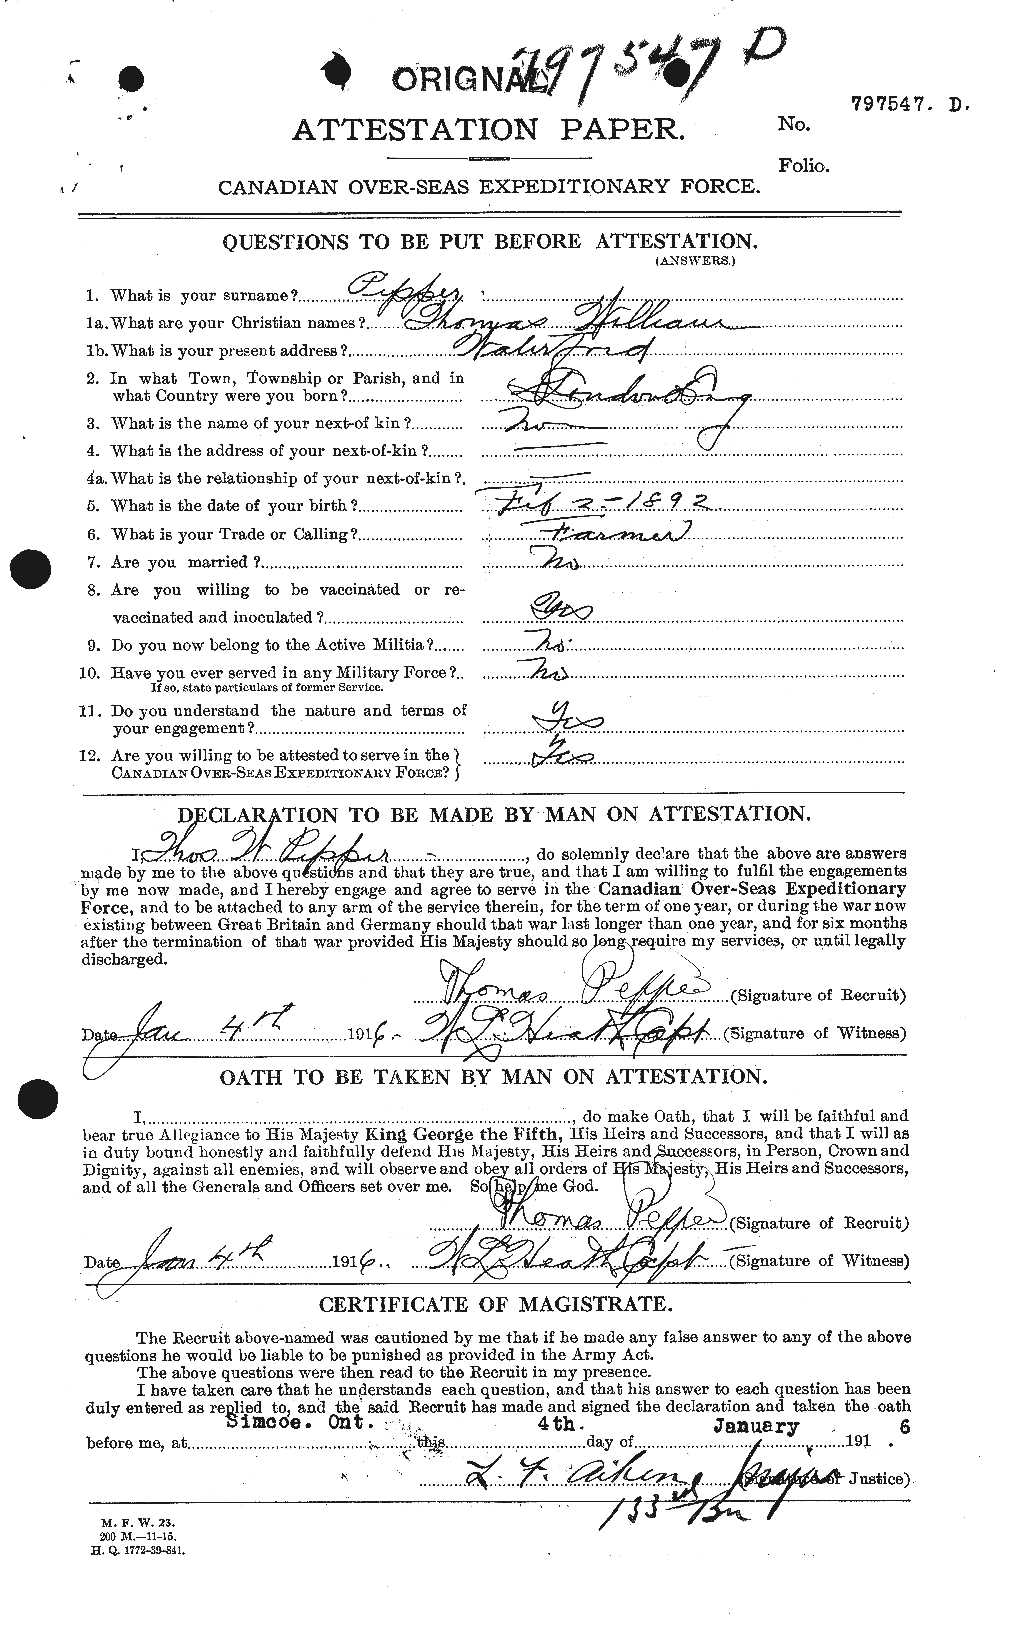 797547 D
ORIGNAL
797547. D.
ATTESTATION PAPER. No.
Folio.
CANADIAN OVER-SEAS EXPEDITIONARY FORCE.
QUESTIONS TO BE PUT BEFORE ATTESTATION.
(ANSWERS.)
1. What is your surname? Pepper
1a. What are your Christian names? Thomas William
1b. What is your present address? Waterford
2. In what Town, Township or Parish, and in
what Country were you born? London Eng
3. What is the name of your next-of kin? No
4. What is the address of your next-of-kin? —
4a. What is the relationship of your next-of-kin? —
5. What is the date of your birth? Feb 2 - 1892
6. What is your Trade or Calling? Farmer
7. Are you married? No
8. Are you willing to be vaccinated or re-
vaccinated and inoculated? Yes
9. Do you now belong to the Active Militia? No
10. Have you ever served in any Military Force? No
If so, state particulars of former Service.
11. Do you understand the nature and terms of
your engagement? Yes
12. Are you willing to be attested to serve in the
CANADIAN OVER-SEAS EXPEDITIONARY FORCE? Yes
DECLARATION TO BE MADE BY MAN ON ATTESTATION.
I, Thos W Pepper, do solemnly declare that the above are answers
made by me to the above questions and that they are true, and that I am willing to fulfil the engagements
by me now made, and I hereby engage and agree to serve in the Canadian Over-Seas Expeditionary
Force, and to be attached to any arm of the service therein, for the term of one year, or during the war now
existing between Great Britain and Germany should that war last longer than one year, and for six months
after the termination of that war provided His Majesty should so long require my services, or until legally
discharged.
Thomas Pepper (Signature of Recruit)
Date Jan 4th 1916. W L Heath Capt (Signature of Witness)
OATH TO BE TAKEN BY MAN ON ATTESTATION.
I, , do make Oath, that I will be faithful and
bear true Allegiance to His Majesty King George the Fifth, His Heirs and Successors, and that I will as
in duty bound honestly and faithfully defend His Majesty, His Heirs and Successors, in Person, Crown and
Dignity, against all enemies, and will observe and obey all orders of His Majesty, His Heirs and Successors,
and of all the Generals and Officers set over me. So help me God.
Thomas Pepper (Signature of Recruit)
Date Jan 4th 1916. W L Heath Capt (Signature of Witness)
CERTIFICATE OF MAGISTRATE.
The Recruit above-named was cautioned by me that if he made any false answer to any of the above
questions he would be liable to be punished as provided in the Army Act.
The above questions were then read to the Recruit in my presence.
I have taken care that he understands each question, and that his answer to each question has been
duly entered as replied to, and the said Recruit has made and signed the declaration and taken the oath
before me, at Simcoe. Ont. this 4th. day of January 1916.
L. F. Aiken Major (Signature of Justice)
133rd Bn
M. F. W. 23.
200 M.—11-15.
H. Q. 1772-39-841.